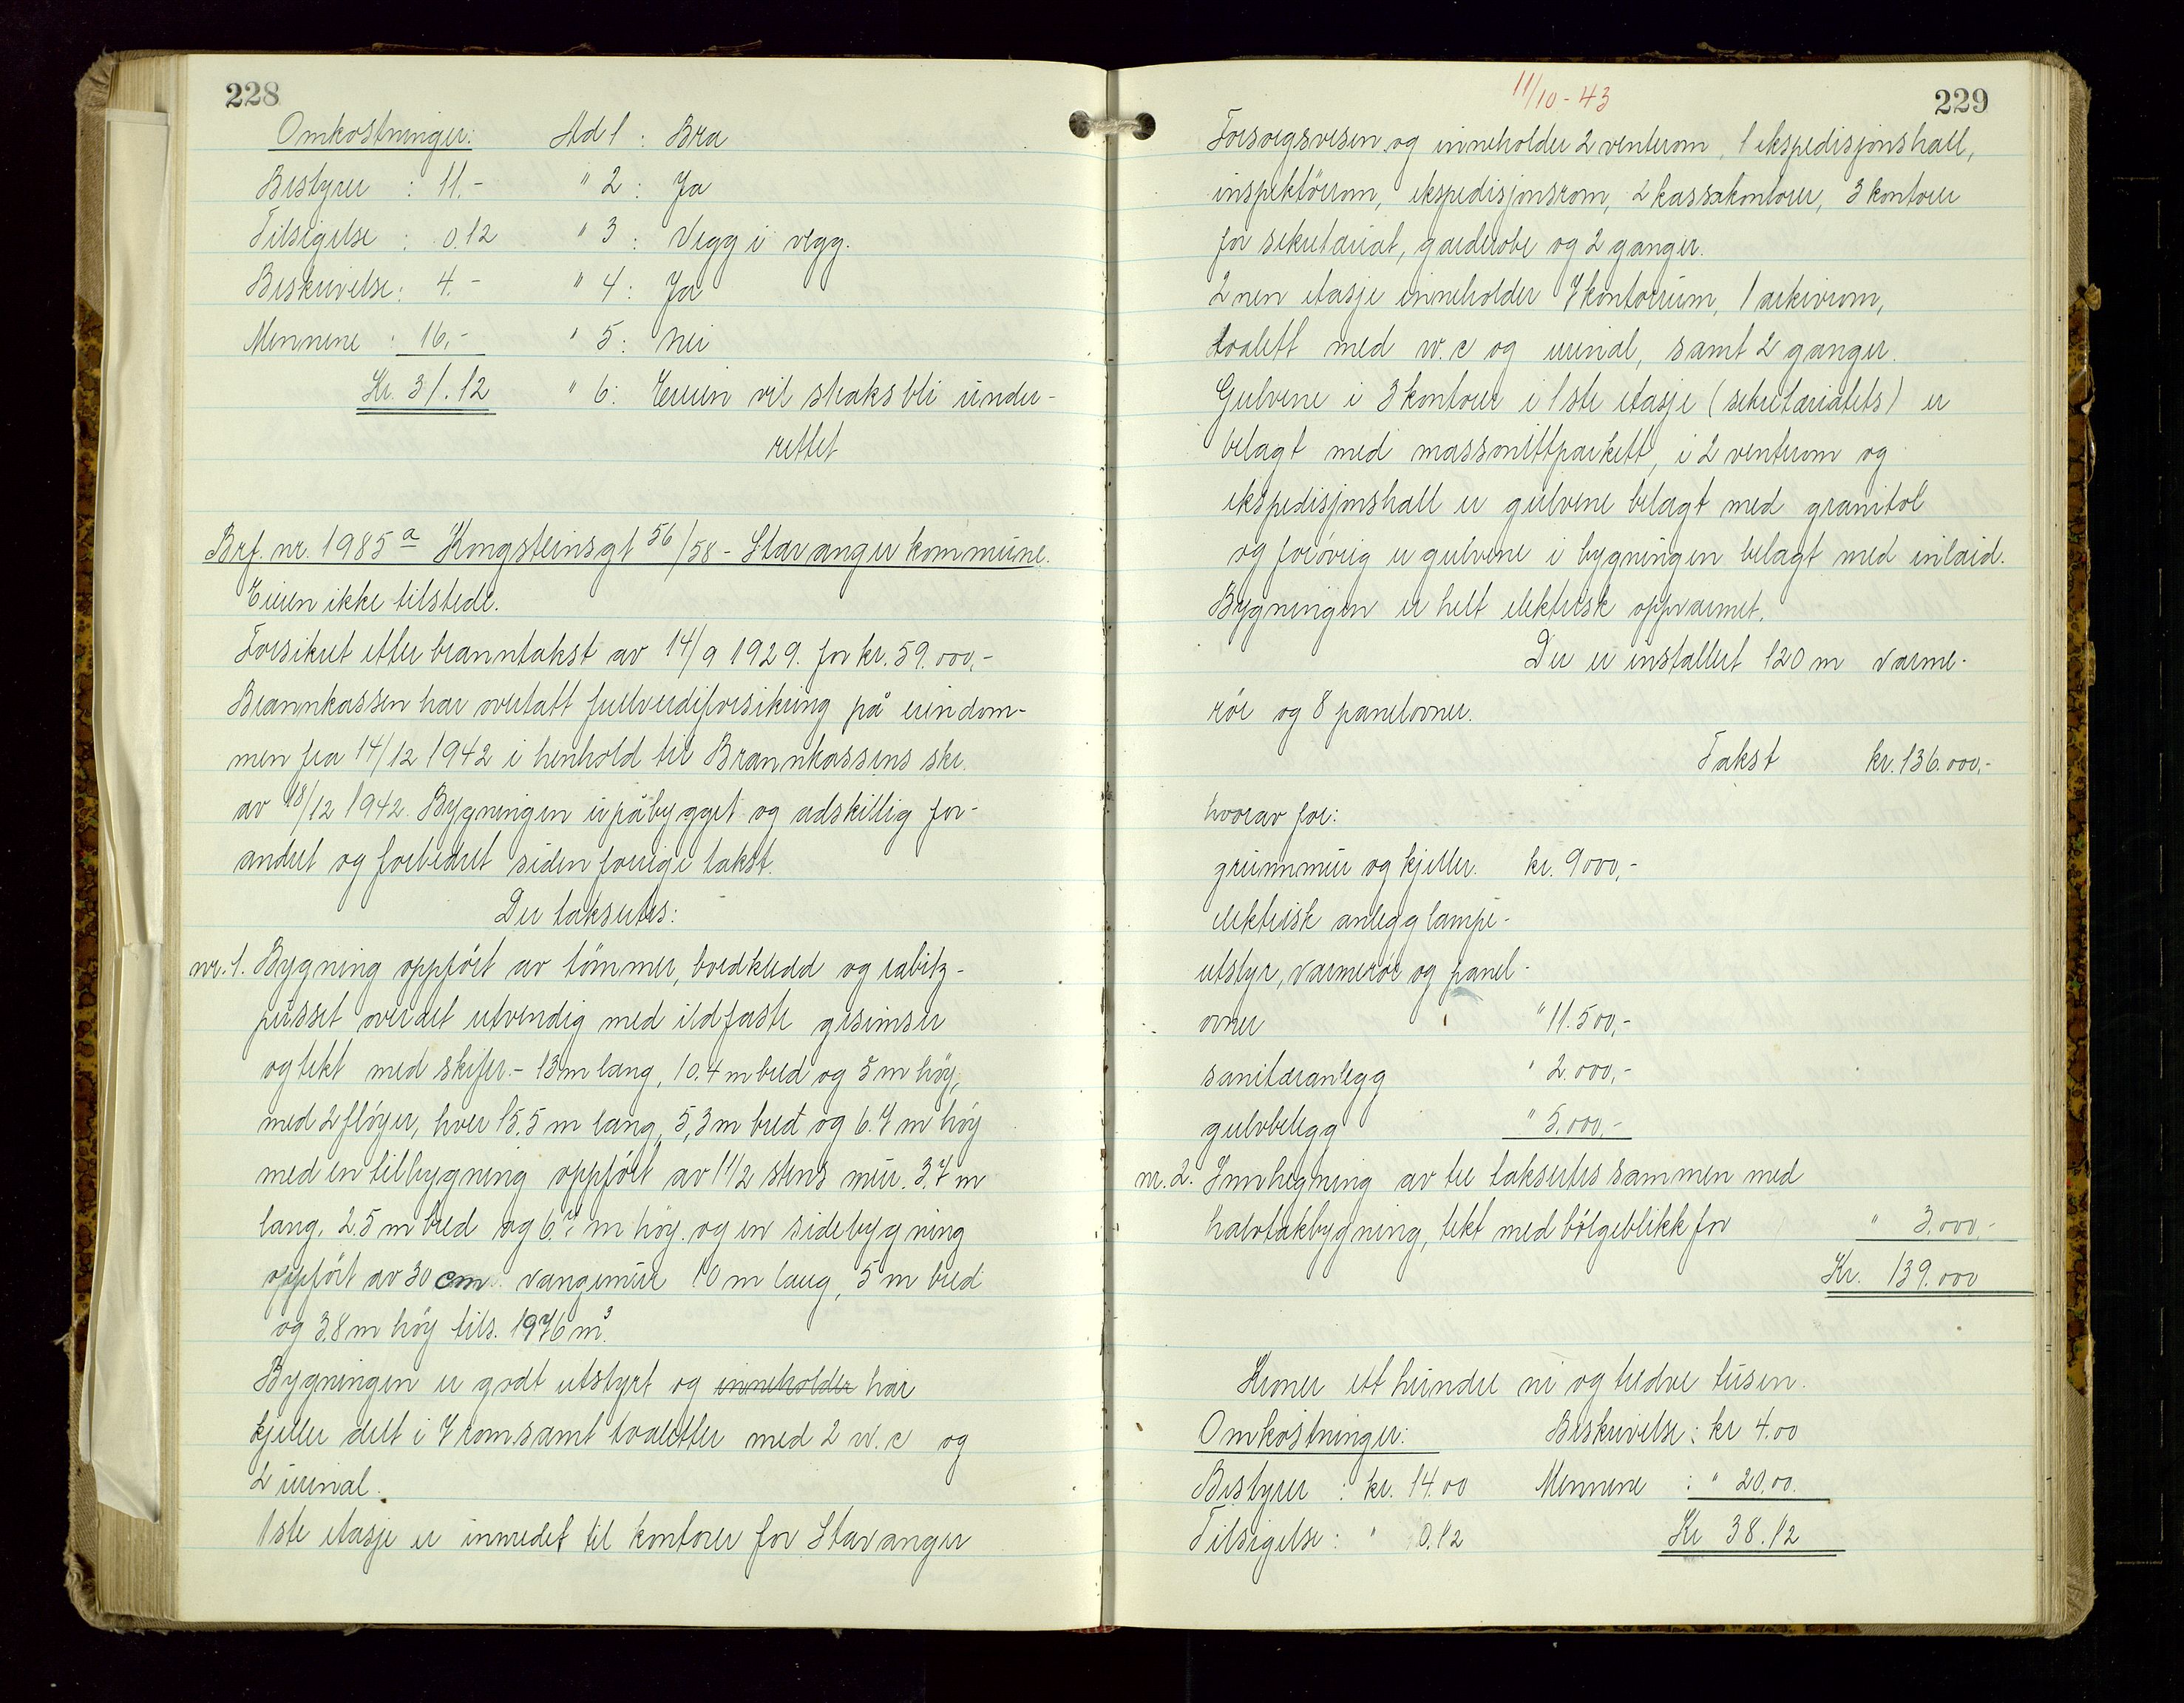 228
Omkostninger: Ad 1 : Bra
Bestyrer : 11.- " 2 : Ja
Tilsigelse : 0.12 " 3 : Vegg i vegg.
Beskrivelse : 4.- " 4 : Ja
Mennene : 16.- " 5 : Nei
Kr. 31.12 " 6 : Eieren vil straks bli under-
rettet
Brf. nr. 1985 a Kongsteinsgt 56/58 - Stavanger kommune.
Eieren ikke tilstede.
Forsikret etter branntakst av 14/9 1929. for kr. 59.000,-
Brannkassen har overtatt fullverdiforsikring på eiendom-
men fra 14/12 1942 i henhold til Brannkassens skr.
av 18/12 1942. Bygningen er påbygget og adskillig for-
andret og forbedret siden forrige takst.
Der takseres:
nr. 1. Bygning oppført av tømmer, bordkledd og rabitz-
pusset overalt utvendig med ildfaste gesimser
og tekt med skifer.- 13 m lang, 10.4 m bred og 5 m høy,
med 2 fløyer, hver 15.5 m lang, 5,3 m bred og 6.7 m høy
med en tilbygning oppført av 1 1/2 stens mur. 3.7 m
lang, 2.5 m bred og 6.7 m høy. og en sidebygning
oppført av 30 cm. vangemur 10 m lang, 5 m bred
og 3.8 m høy tils. 1976 m³.
Bygningen er godt utstyrt og inneholder har
kjeller delt i 7 rom samt toaletter med 2 w.c og
2 urinal.
1ste etasje er innredet til kontorer for Stavanger
11/10-43
229
Forsorgsvesen og inneholder 2 venterom, 1 ekspedisjonshall,
inspektørrom, ekspedisjonsrom, 2 kassakontorer, 3 kontorer
for sekretariat, garderobe og 2 ganger.
2nen etasje inneholder 7 kontorrum, 1 arkivrom,
toalett med w.c og urinal, samt 2 ganger.
Gulvene i 3 kontorer i 1ste etasje (sekretariatets) er
belagt med massonittparkett, i 2 venterom og
ekspedisjonshall er gulvene belagt med granitol
og forøvrig er gulvene i bygningen belagt med inlaid.
Bygningen er helt elektrisk oppvarmet.
Der er installert 120 m varme-
rør og 8 panelovner.
Takst kr. 136.000,-
hvorav for:
grunnmur og kjeller. kr. 9000,-
elektrisk anlegg lampe-
utstyr, varmerør og panel-
ovner " 11.500,-
sanitæranlegg " 2.000,-
gulvbelegg " 5.000.-
nr. 2. Innhegning av tre takseres sammen med
halvtakbygning, tekt med bølgeblikk for " 3.000,-
Kr. 139.000
Kroner ett hundre ni og tredve tusen.
Omkostninger: Beskrivelse : kr 4.00
Bestyrer : kr. 14.00 Mennene : " 20.00.
Tilsigelse : " 0.12 Kr 38.12